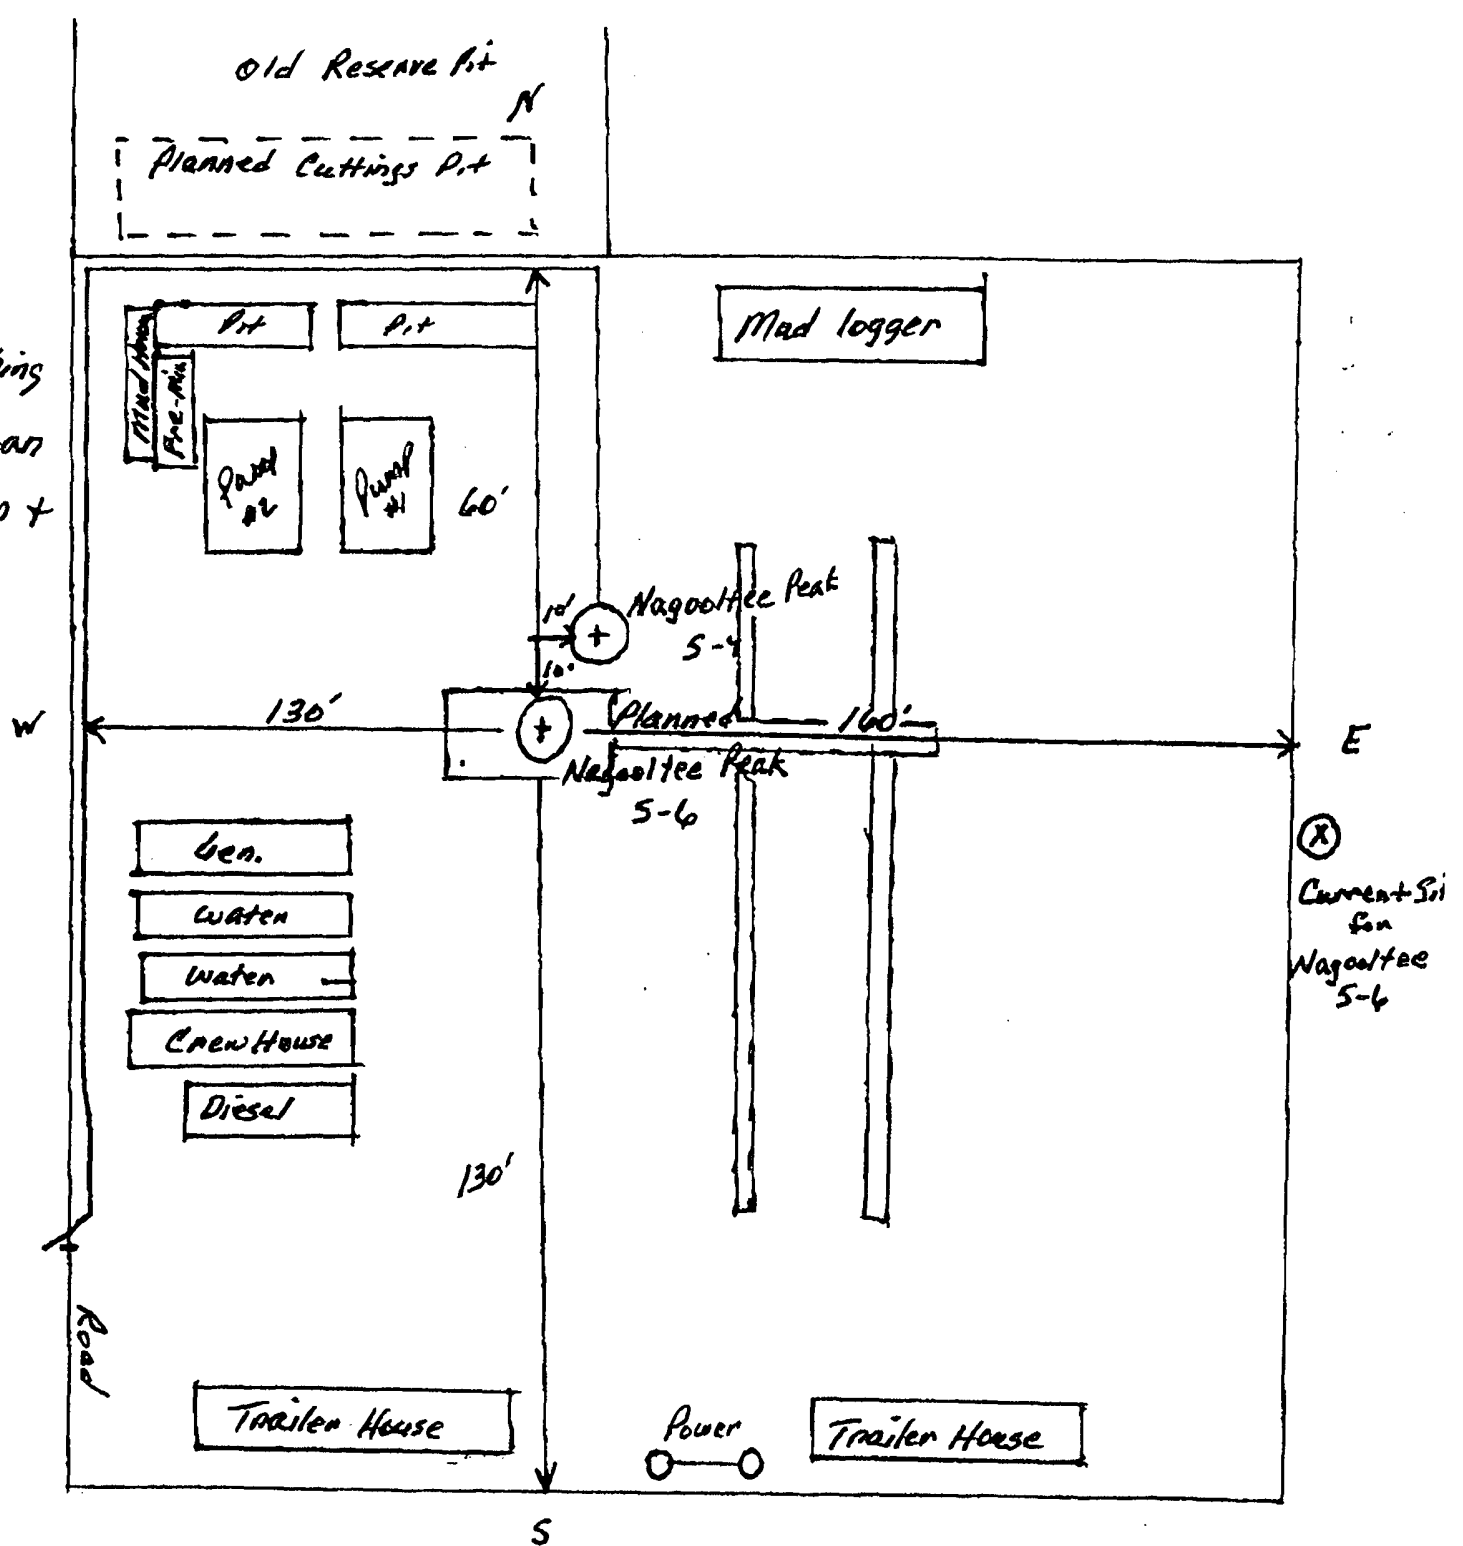 Old Reserve Pit
N
Planned Cuttings Pit
Pit
Pit
Mud logger
Mud House
Pre-Mix
Pump
#2
Pump
#1
60'
10'
Nagooltee Peak
5-4
10'
W
130'
Planned
160'
E
Nagooltee Peak
5-6
Gen.
Water
Water
Crew House
Diesel
Current Sit
for
Nagooltee
5-6
130'
Road
Trailer House
Power
Trailer House
S